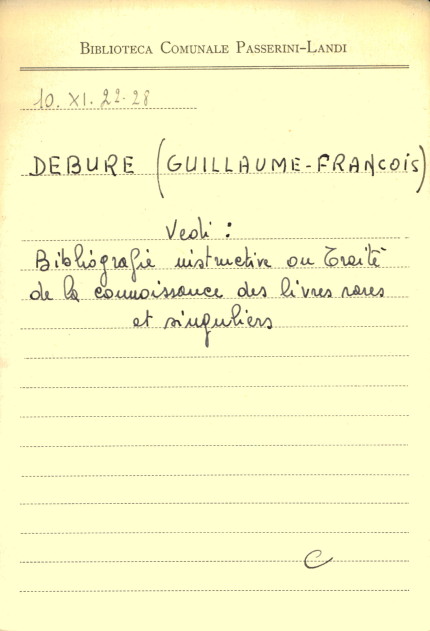 BIBLIOTECA COMUNALE PASSERINI-LANDI
10. XI. 22-28
DEBURE (GUILLAUME-FRANÇOIS)
Vedi:
Bibliografie instructive ou Traité
de la connoissance des livres rares
et singuliers
C